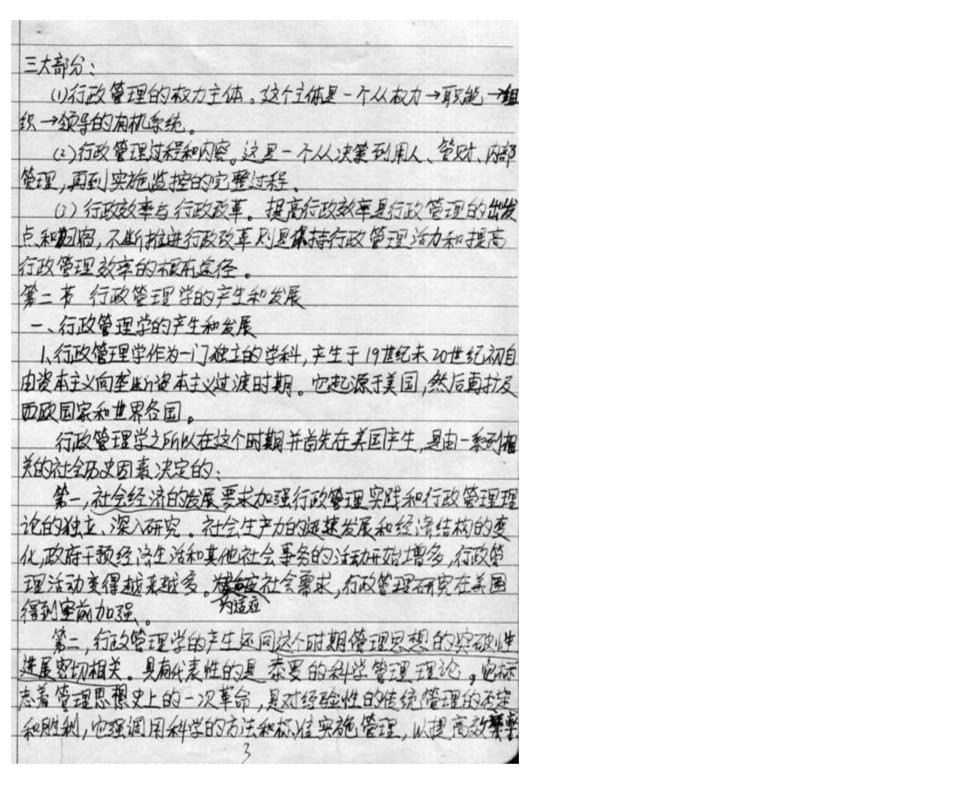 三大部分：
(1)行政管理的权力主体。这个主体是一个从权力→职能→组
织→领导的有机系统。
(2)行政管理过程和内容。这是一个从决策到用人、管财、内部
管理，再到实施监控的完整过程。
(3)行政效率与行政改革。提高行政效率是行政管理的出发
点和归宿，不断推进行政改革则是保持行政管理活力和提高
行政管理效率的根本途径。
第二节 行政管理学的产生和发展
一、行政管理学的产生和发展
1、行政管理学作为一门独立的学科，产生于19世纪末20世纪初自
由资本主义向垄断资本主义过渡时期。它起源于美国，然后再扩及
西欧国家和世界各国。
行政管理学之所以在这个时期并首先在美国产生，是由一系列相
关的社会历史因素决定的：
第一，社会经济的发展要求加强行政管理实践和行政管理理
论的独立、深入研究。社会生产力的迅速发展和经济结构的变
化，政府干预经济生活和其他社会事务的活动开始增多，行政管
理活动变得越来越多。社会需求，行政管理研究在美国
为适应
得到空前加强。
第二，行政管理学的产生还同这个时期管理思想的突破性
进展密切相关。具有代表性的是泰罗的科学管理理论，它标
志着管理思想史上的一次革命，是对经验性的传统管理的否定
和胜利，它强调用科学的方法和标准实施管理，以提高效率
3